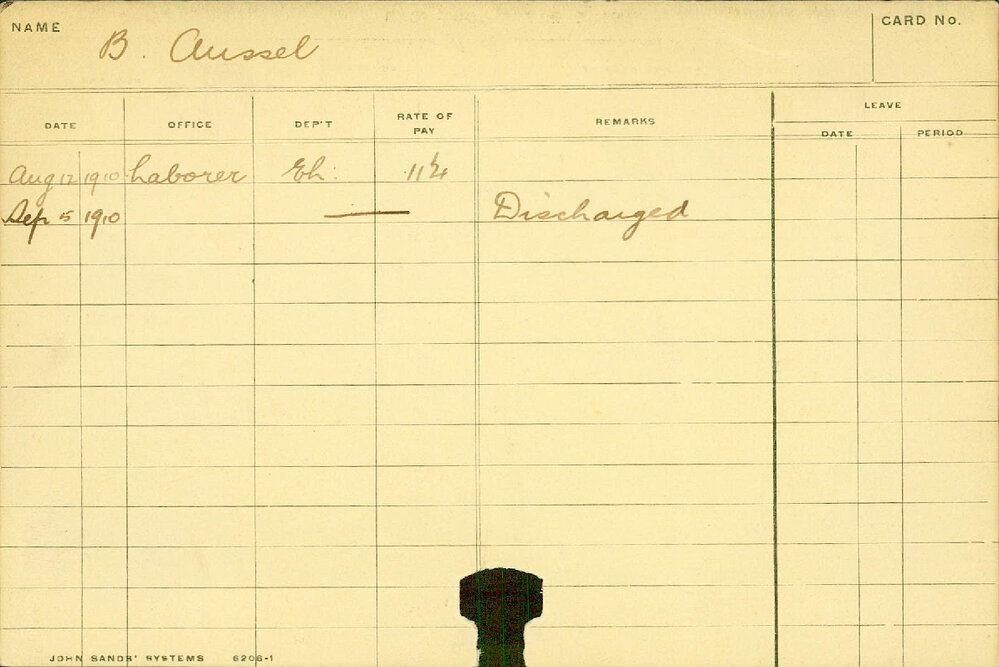 NAME B. Aussel CARD No.
DATE OFFICE DEP'T RATE OF PAY REMARKS LEAVE
DATE PERIOD
Aug 12 1910 Laborer Eh.
Sep 5 1910 — Discharged
JOHN SANDS' SYSTEMS 6206-1